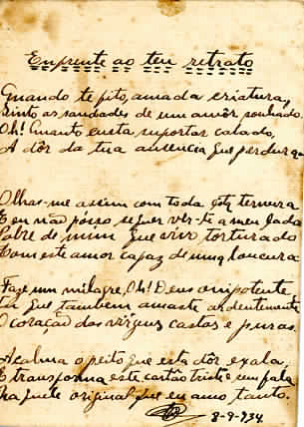 Enfrente ao teu retrato
Quando te fito, amada criatura,
Sinto as saudades de um amôr sonhado
Oh! Quanto custa suportar calado,
A dôr da tua ausencia que perdura
Olhas-me assim com toda esta ternura
E eu não pósso sequer ver-te a meu lado
Pobre de mim que vivo torturado
Com este amor capaz de uma loucura
Faze um milagre, Oh! Deus onipotente
Tu que tambem amaste ardentemente
O coração das virgens castas e puras
Acalma o peito que esta dôr exala
E transforma este cartão triste e sem fala
Na quele original que eu amo tanto.
8-9-934